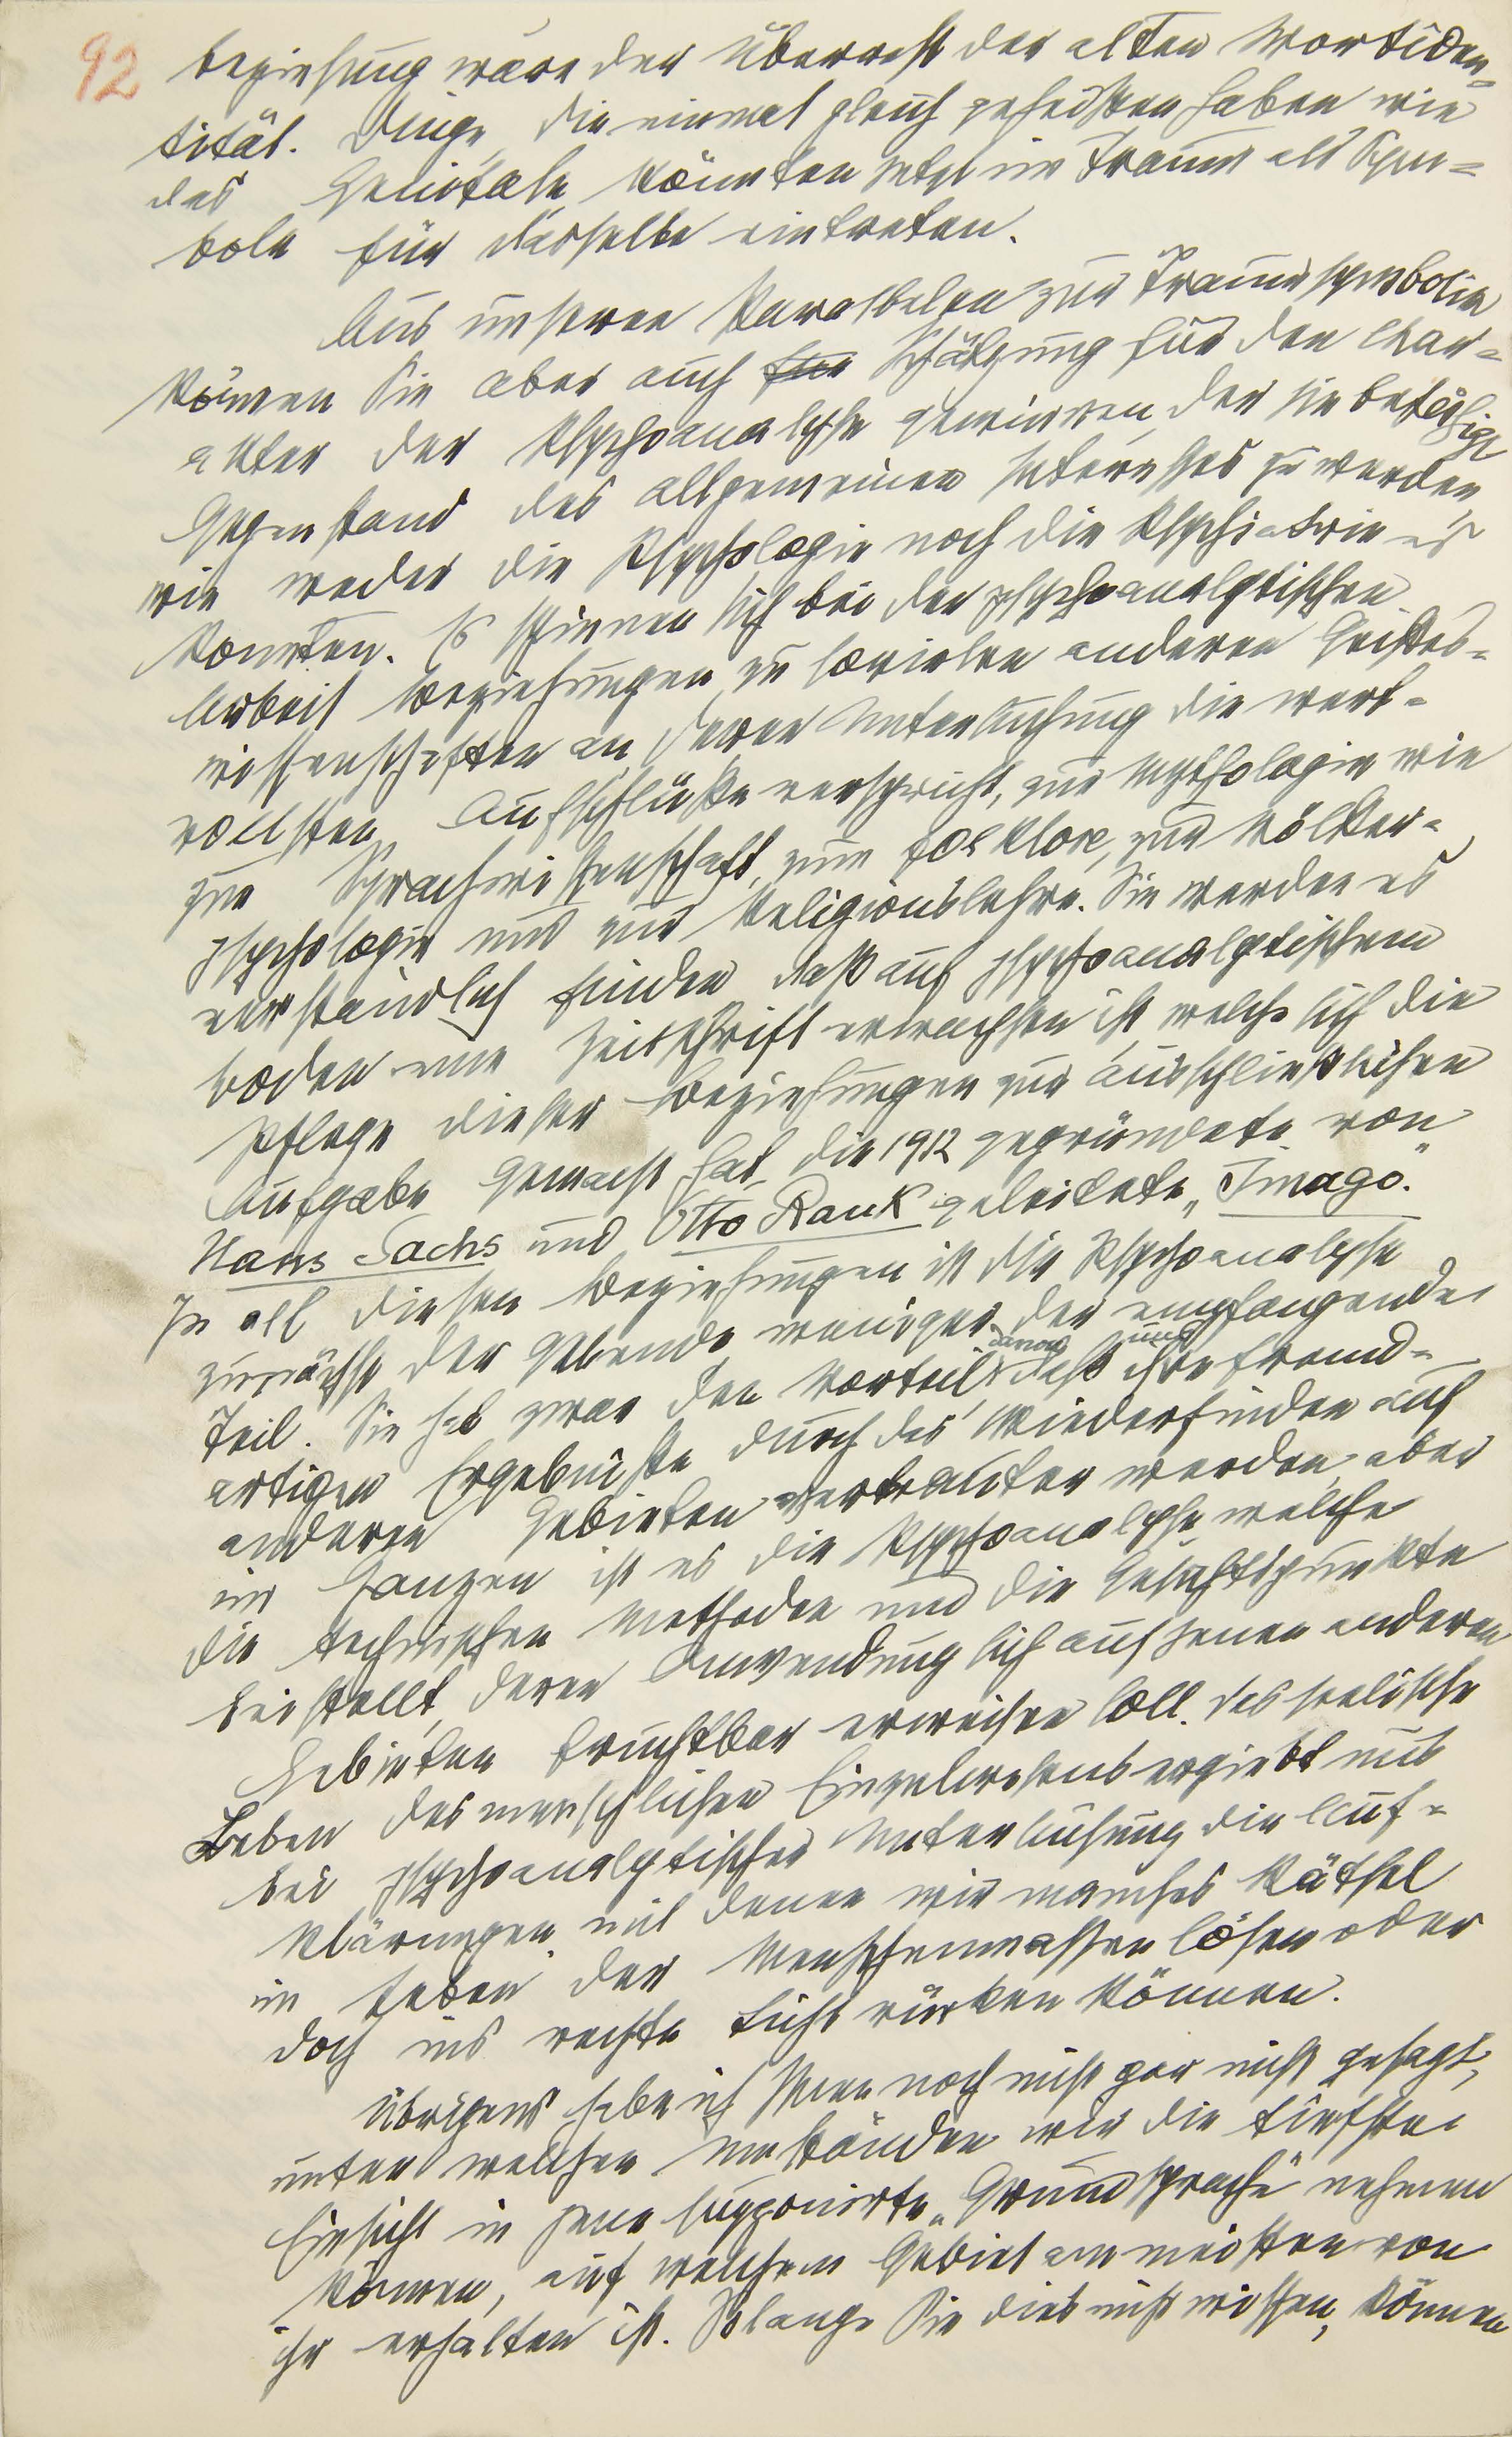 92
beziehung wäre der Überrest der alten Wortiden-
tität. Dinge, die einmal gleich geheißen haben wie
das Genitale, könnten jetzt im Traum als Sym=
bole für dasselbe eintreten.
Aus unseren Parallelen zur Traumsymbolik
können Sie aber auch Schätzung für den Char=
akter der Psychoanalyse gewinnen, der sie befähigt
Gegenstand des allgemeinen Interesses zu werden,
wie weder die Psychologie noch die Psychiatrie es
konnten. Es spinnen sich bei der psychoanalytischen
Arbeit Beziehungen zu sovielen anderen Geistes=
wissenschaften an, deren Untersuchung die wert=
vollsten Aufschlüsse verspricht, zur Mythologie wie
zur Sprachwissenschaft, zum Folklore, zur Völker=
psychologie und zur Religionslehre. Sie werden es
verständlich finden, daß auf psychoanalytischem
Boden eine Zeitschrift erwachsen ist, welche sich die
Pflege dieser Beziehungen zur ausschließlichen
Aufgabe gemacht hat, die 1912 gegründete, von
Hans Sachs und Otto Rank geleitete „Imago".
In all diesen Beziehungen ist die Psychoanalyse
zunächst der gebende, weniger der empfangende
Teil. Sie hat zwar den Vorteil davon, daß uns ihre fremd=
artigen Ergebnisse durch das Wiederfinden auf
anderen Gebieten vertrauter werden, aber
im Ganzen ist es die Psychoanalyse, welche
die technischen Methoden und die Gesichtspunkte
beistellt, deren Anwendung sich auf jenen anderen
Gebieten fruchtbar erweisen soll. Das seelische
Leben des menschlichen Einzelwesens ergiebt uns
bei psychoanalytischer Untersuchung die Auf=
klärungen, mit denen wir manches Räthsel
im Leben der Menschenmassen lösen oder
doch ins rechte Licht rücken können.
Übrigens habe ich Ihnen noch nicht gar nicht gesagt,
unter welchen Umständen wir die tiefste
Einsicht in jene supponirte „Grundsprache" nehmen
können, auf welchem Gebiet am meisten von
ihr erhalten ist. Solange Sie dies nicht wissen, können